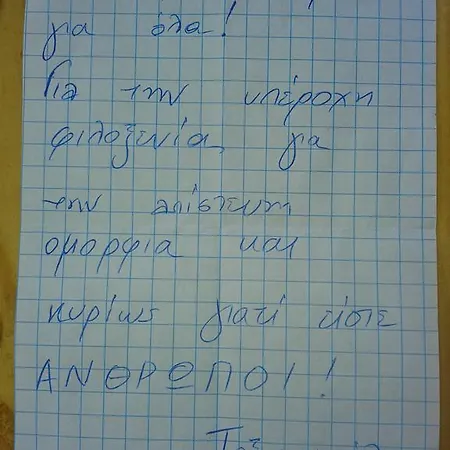 για όλα!
Για την υπέροχη
φιλοξενία, για
την απίστευτη
ομορφιά και
κυρίως γιατί είστε
ΑΝΘΡΩΠΟΙ!